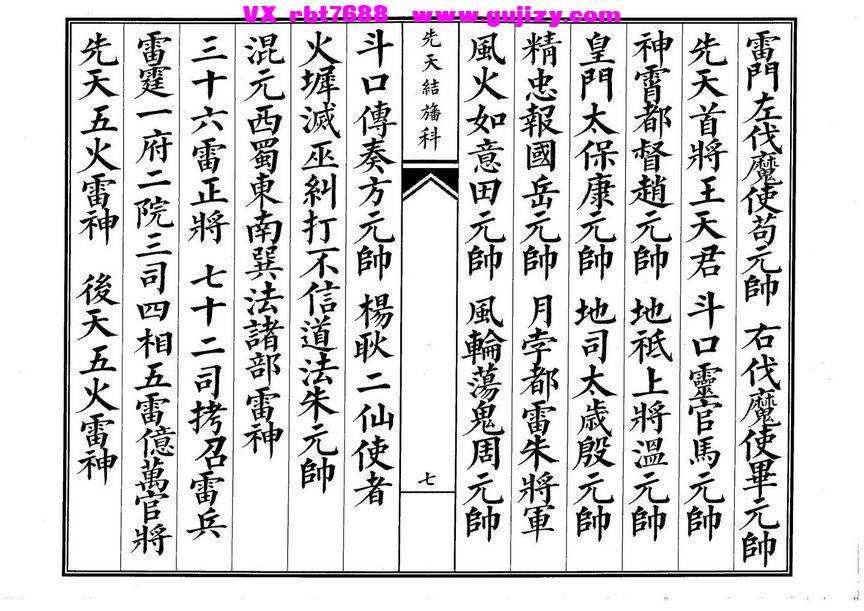 VX rbt7688 www.gujizy.com
雷門左伐魔使苟元帥 右伐魔使畢元帥
先天首將王天君 斗口靈官馬元帥
神霄都督趙元帥 地祇上將溫元帥
皇門太保康元帥 地司太歲殷元帥
精忠報國岳元帥 月孛都雷朱將軍
風火如意田元帥 風輪蕩鬼周元帥
先天結旛科
七
斗口傳奏方元帥 楊耿二仙使者
火墀滅巫糾打不信道法朱元帥
混元西蜀東南巽法諸部雷神
三十六雷正將 七十二司拷召雷兵
雷霆一府二院三司四相五雷億萬官將
先天五火雷神 後天五火雷神